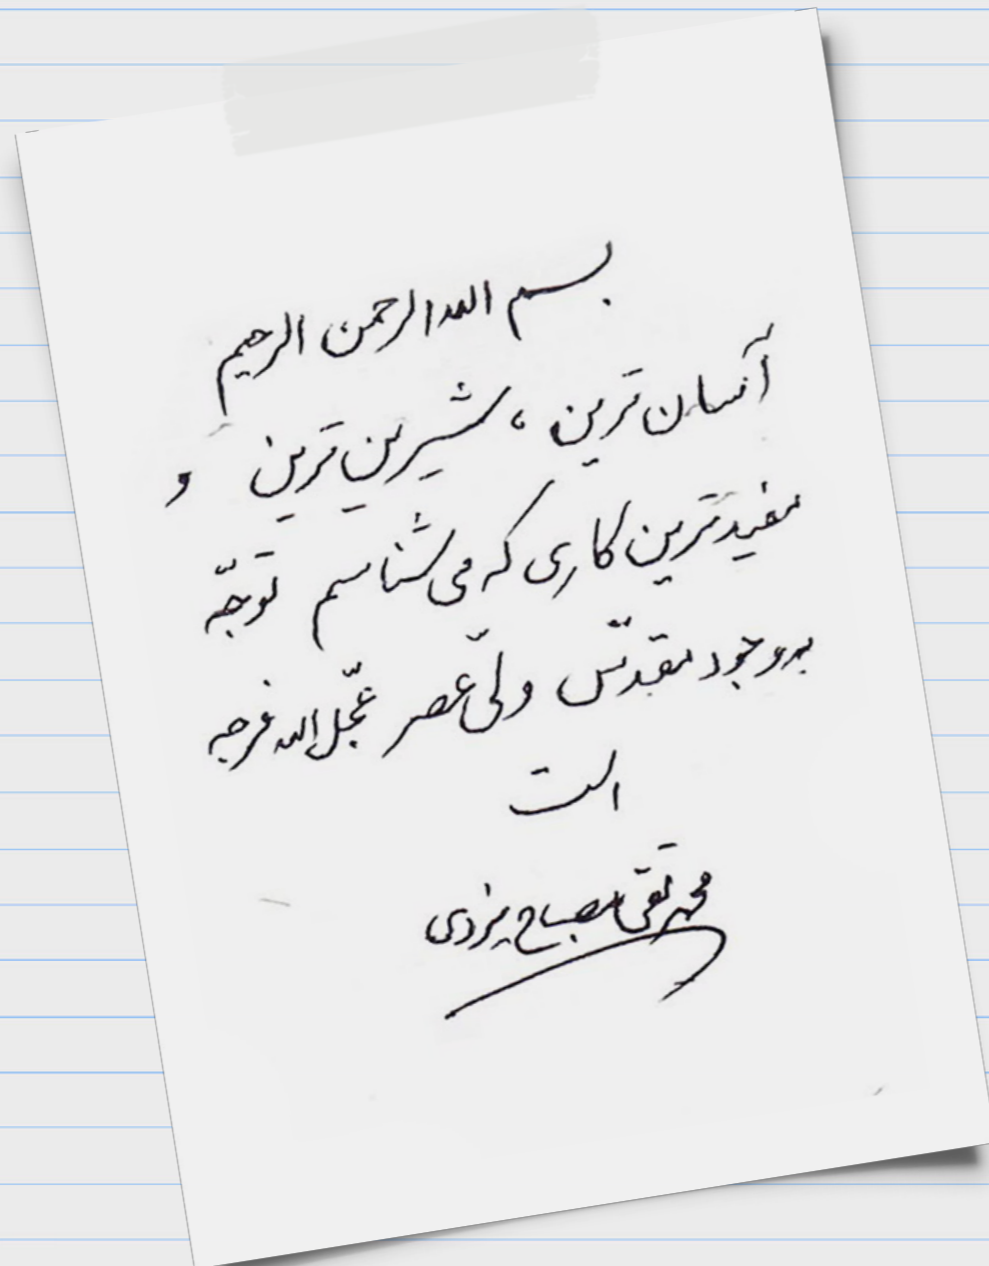 بسم الله الرحمن الرحیم
آسان ترین ، شیرین ترین و
مفیدترین کاری که می شناسم توجّه
به وجود مقدّس ولیّ عصر عجّل الله فرجه
است
محمد تقی مصباح یزدی